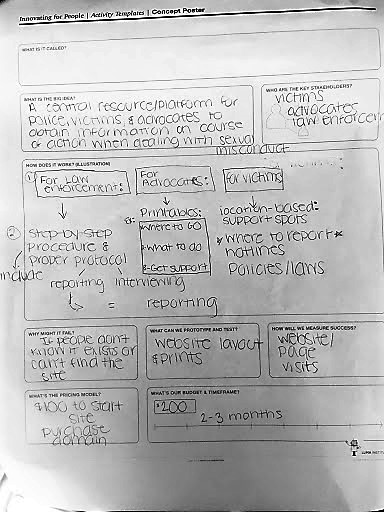 Innovating for People | Activity Templates | Concept Poster
WHAT IS IT CALLED?
WHAT IS THE BIG IDEA?
A central resource/platform for
police, victims, & advocates to
obtain information on course
of action when dealing with sexual
misconduct
WHO ARE THE KEY STAKEHOLDERS?
victims
advocates
law enforcem
HOW DOES IT WORK? (ILLUSTRATION)
① For Law
enforcement:
For
Advocates:
For victims
② Step-by-step
procedure &
proper protocol
include
reporting interviewing
= reporting
Printables:
Where to GO
What to do
Get support
location-based:
support spots
* Where to report *
hotlines
Policies/laws
WHY MIGHT IT FAIL?
If people don't
know it exists or
can't find the
site
WHAT CAN WE PROTOTYPE AND TEST?
website layout
& prints
HOW WILL WE MEASURE SUCCESS?
website/
page
visits
WHAT'S THE PRICING MODEL?
$100 to start
site
purchase
domain
WHAT'S OUR BUDGET & TIMEFRAME?
$200
2-3 months
LUMA INSTIT